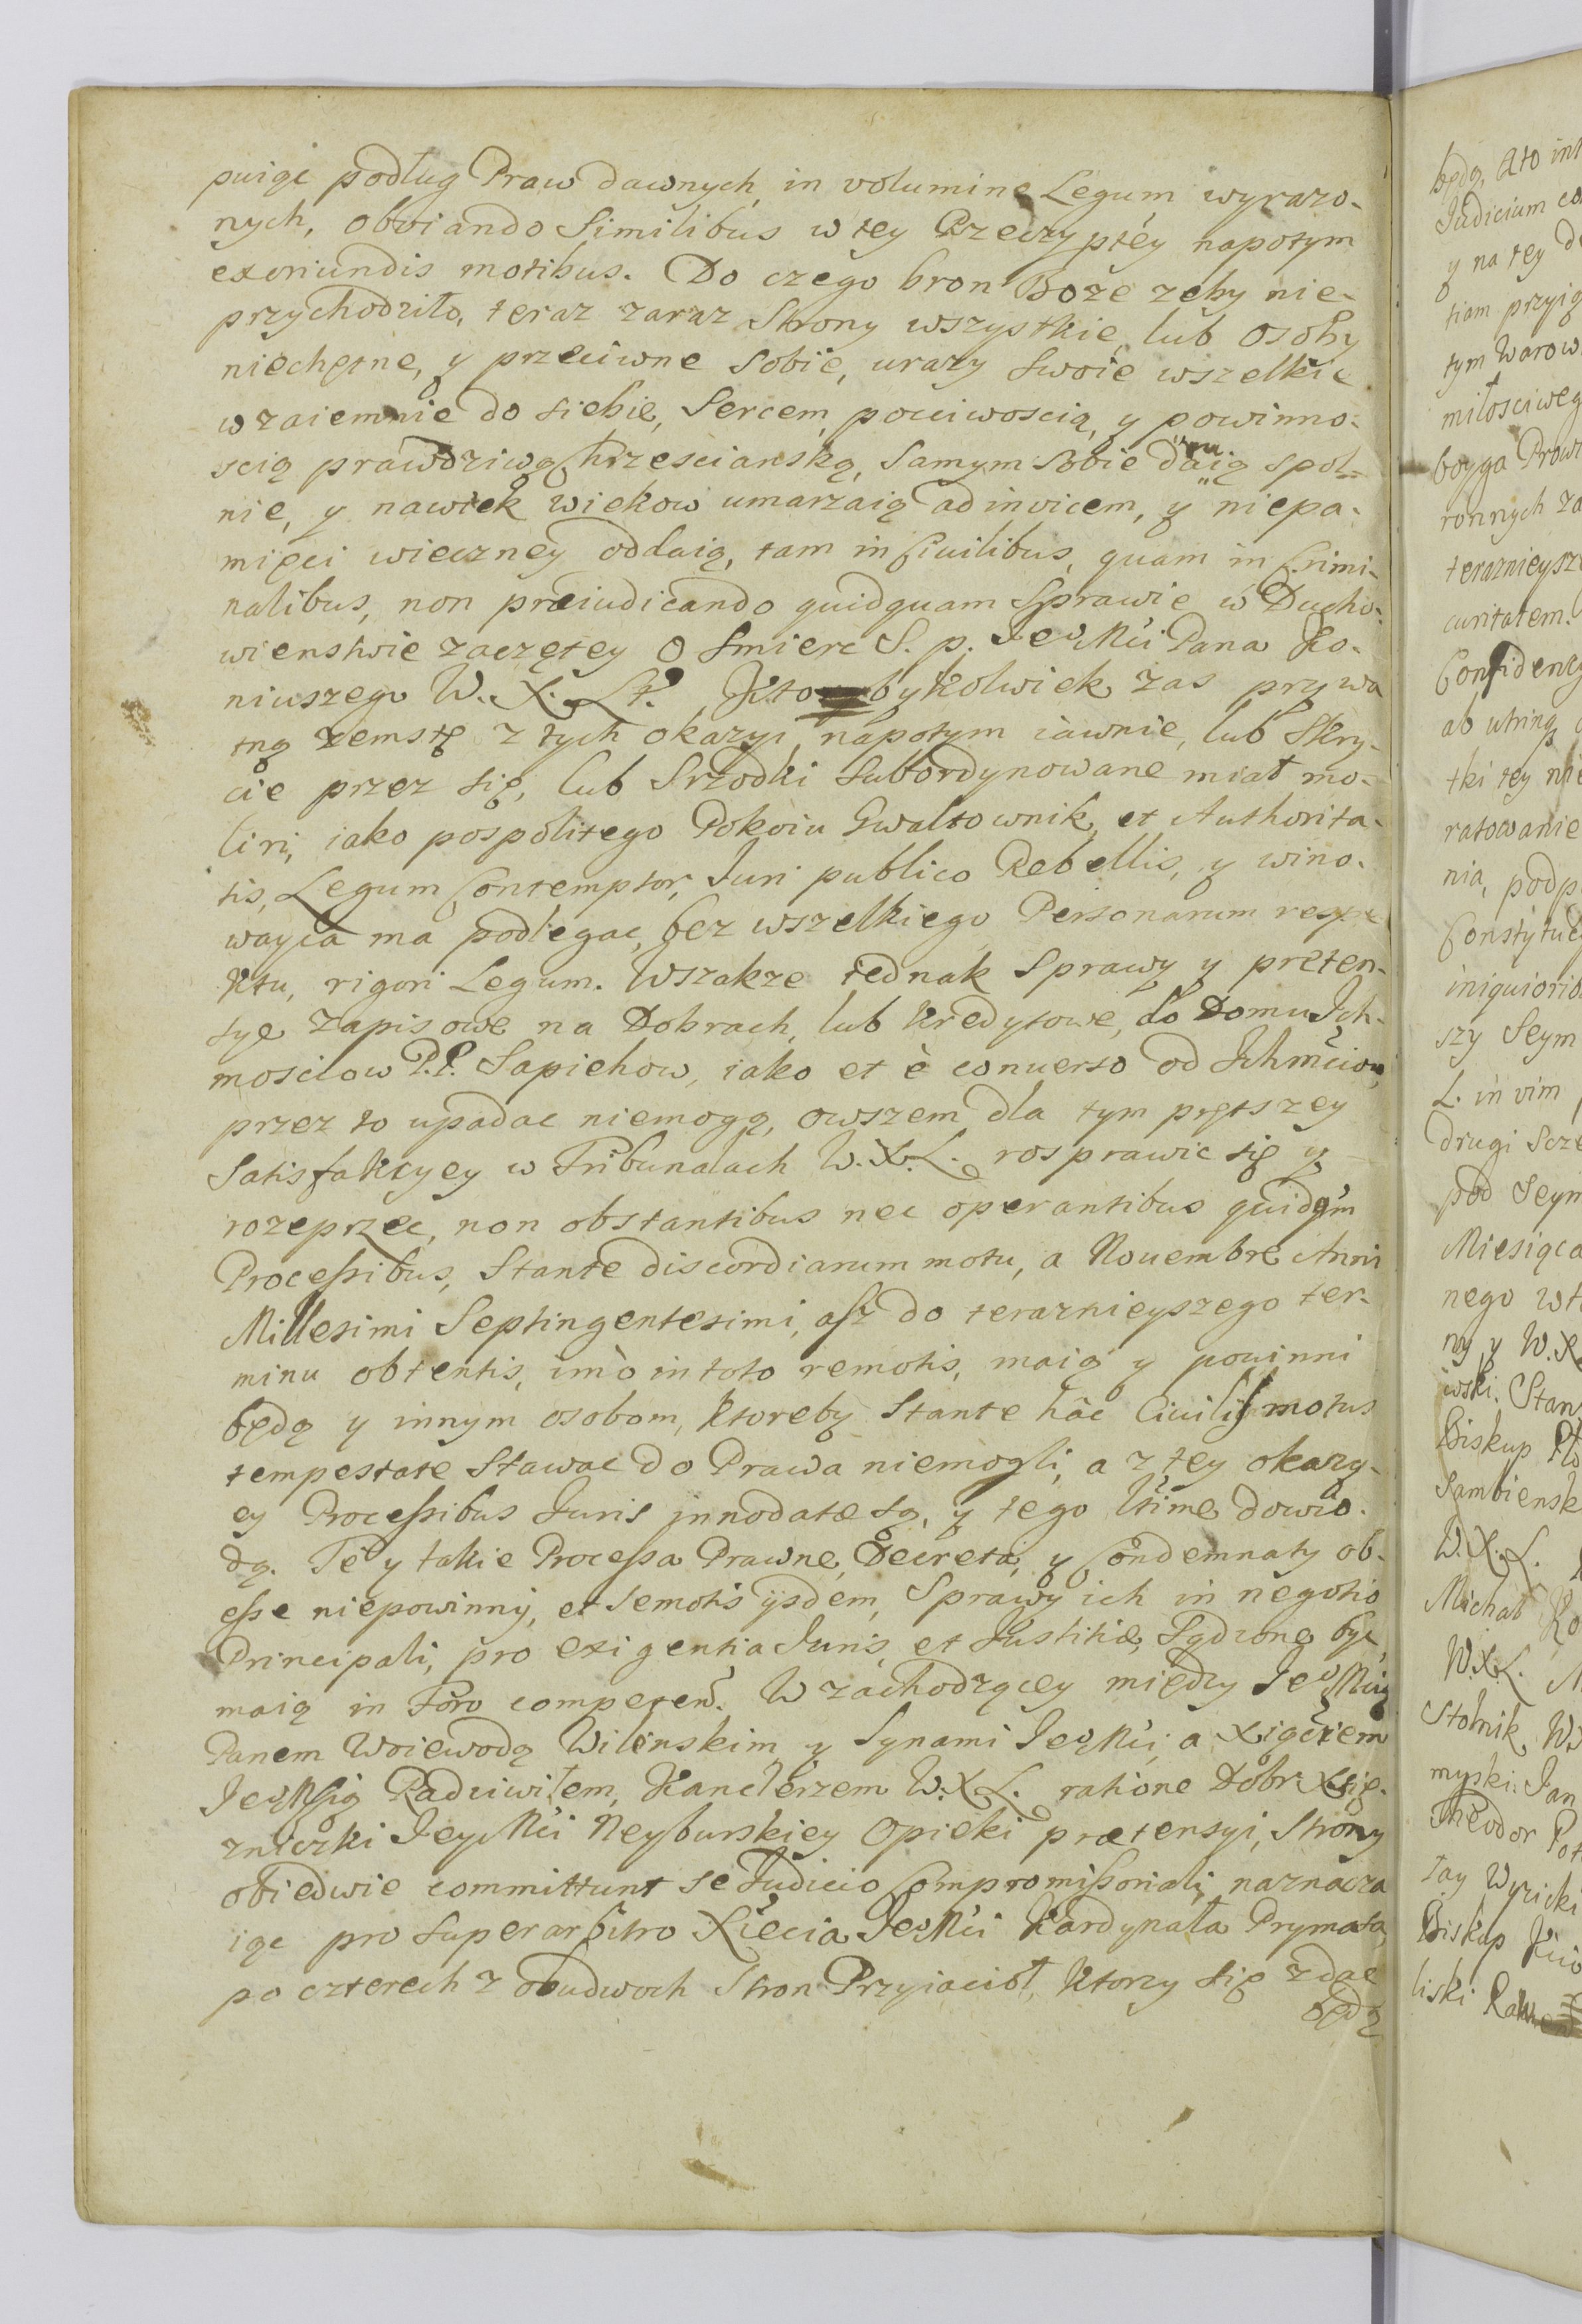 puiąc podług Praw dawnych in volumine Legum wyrazo-
nych, obviando Similibus w tey Rzeczyptéy napotym
exoriundis motibus. Do czego bron Boże zeby nie-
przychodziło, teraz zaraz Strony wszystkie lub osoby
niechętne, y przeciwne Sobie, urazy swoie wszelkie
wzaiemnie do siebie, Sercem, pociwoscią, y powinno-
scią prawdziwą Chrzescianską, Samym Sobie daruią spol-
nie, y nawiek wiekow umarzaią ad invicem, y niepa-
mięci wieczney oddaią, tam in Civilibus, quam in Crimi-
nalibus, non præiudicando quidquam Sprawie w Ducho-
wienstwie zaczętey o Smierc S. p. Jeo Mci Pana Ko-
niuszego W. X. Lt. Ktobykolwiek zas prywa
tną zemstę z tych okazyi napotym iawnie, lub Skry-
cie przez się, lub Srzodki subordynowane miał mo-
liri, iako pospolitego Pokoiu Gwałtownik, et Authorita-
tis, Legum Contemptor, Juri publico Rebellis, y wino-
wayca ma podlegac, bez wszelkiego Personarum respe
ktu, rigori Legum. Wszakze iednak Sprawy y preten-
sye zapisowe na Dobrach, lub Kredytowe, do Domu Ich-
mosciow P.P. Sapiehow, iako et è conuerso od Ichmciow,
przez to upadac niemogą, owszem dla tym prętszey
Satisfakcyey w Tribunalach W.X.L. rosprawic się y
rozeprzec, non obstantibus nec operantibus quidq́m
Processibus, Stante discordiarum motu, a Nouembre Anni
Millesimi Septingentesimi, asz do teraznieyszego ter-
minu obtentis, imò in toto remotis, maią y powinni
będą y innym osobom, ktoreby Stante hâc Civilis motus
tempestate Stawac do Prawa niemogli, a z tey okazy-
ey Processibus Juris innodatæ są, y tego ltime dowio-
dą. Te y takie Processa Prawne, Decreta, y Condemnaty ob-
esse niepowinny, et semotis ijsdem, Sprawy ich in negotio
Principali, pro exigentia Juris, et Justitiæ, Sądzone byc
maią in Foro competeñ. W zachodzącey między Jeo Mcią
Panem Woiewodą Wilenskim, y Synami Jeo Mci, a Xiążciem
Jeo Mscią Radziwiłem, Kanclerzem W.X.L. ratione Dobr Xię-
zniczki Jey Mci Neyburskiey Opieki prætensyi, Strony
obiedwie committunt se Judicio Compromissoriali, naznacza
iąc pro superarbitro Xięcia Jeo Mci Kardynała Prymasa,
po czterech z obudwoch Stron Przyiacioł, ktorzy się zdac
będą
będą, Ato int
Judicium co
y na tey d
tiam przyią
tym Warow
miłosciweg
boyga Prow
ronnych za
teraznieysz
curitatem.
Confidency
ab utrinq
tki tey nie
ratowanie
nia, podp
Constytuc
iniquiorio
szy Seym
L. in vim
drugi Scz
pod Seym
Miesiąca
nego wt
ny, y W.X
wski. Stan
Biskup Pło
Sambiensk
W.X.L.
Michał Ko
W.X.L. M
Stolnik W
myski. Jan
Theodor Pot
łay Wyzicki
Biskup Kiio
liski